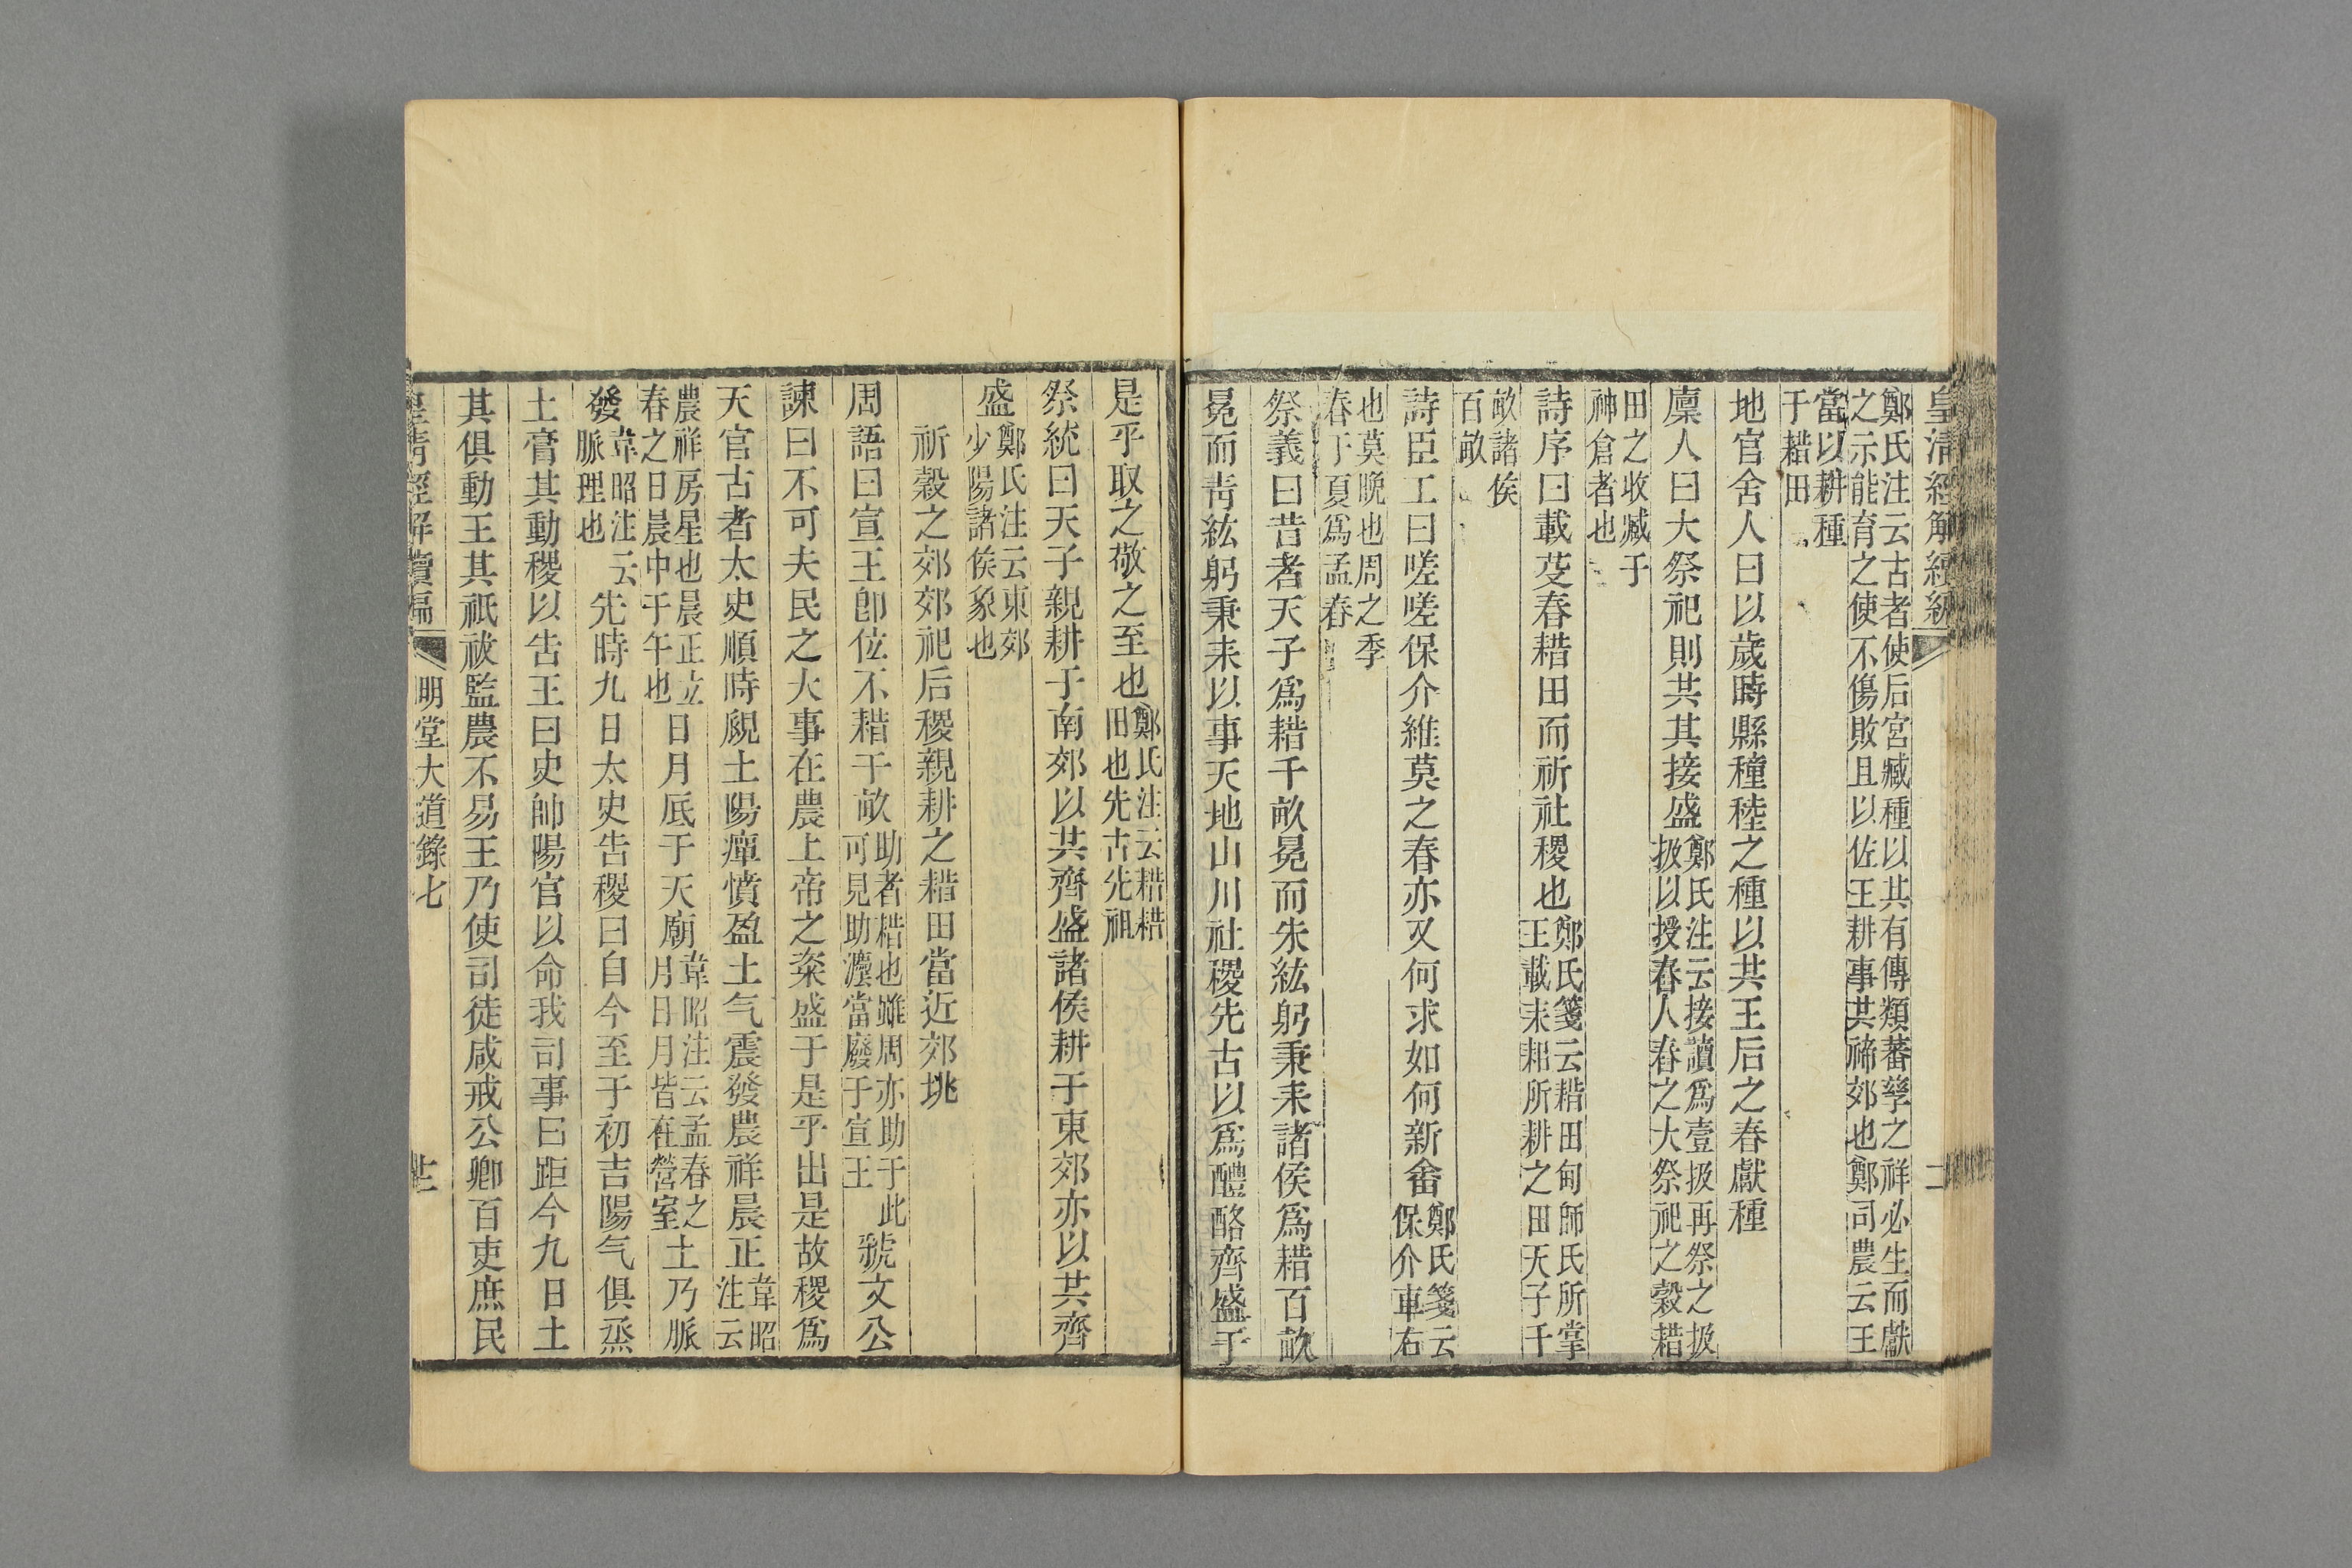 皇清經解續編
鄭氏注云古者使后宮臧種以其有傳類蕃孳之祥必生而獻
之示能育之使不傷敗且以佐王耕事共禘郊也鄭司農云王
當以耕種
于耤田
地官舍人曰以歲時縣穜稑之種以共王后之春獻種
廩人曰大祭祀則共其接盛鄭氏注云接讀爲壹扱再祭之扱
扱以授舂人舂之大祭祀之穀耤
田之收臧于
神倉者也
詩序曰載芟春耤田而祈社稷也鄭氏箋云耤田甸師氏所掌
王載耒耜所耕之田天子千
畝諸侯
百畝
詩臣工曰嗟嗟保介維莫之春亦又何求如何新畬鄭氏箋云
保介車右
也莫晚也周之季
春于夏爲孟春
祭義曰昔者天子爲耤千畝冕而朱紘躬秉耒諸侯爲耤百畝
冕而靑紘躬秉耒以事天地山川社稷先古以爲醴酪齊盛于
是乎取之敬之至也鄭氏注云耤耤
田也先古先祖
祭統曰天子親耕于南郊以共齊盛諸侯耕于東郊亦以共齊
盛鄭氏注云東郊
少陽諸侯象也
祈穀之郊郊祀后稷親耕之耤田當近郊垗
周語曰宣王卽位不耤千畝助者耤也雖周亦助于此
可見助灋當廢于宣王
虢文公
諫曰不可夫民之大事在農上帝之粢盛于是乎出是故稷爲
天官古者太史順時覛土陽癉憤盈土气震發農祥晨正韋昭
注云
農祥房星也晨正立
春之日晨中于午也
日月底于天廟韋昭注云孟春之
月日月皆在營室
土乃脈
發韋昭注云
脈理也
先時九日太史告稷曰自今至于初吉陽气俱烝
土膏其動稷以告王曰史帥陽官以命我司事曰距今九日土
其俱動王其祇祓監農不易王乃使司徒咸戒公卿百吏庶民
皇清經解續編 明堂大道錄七